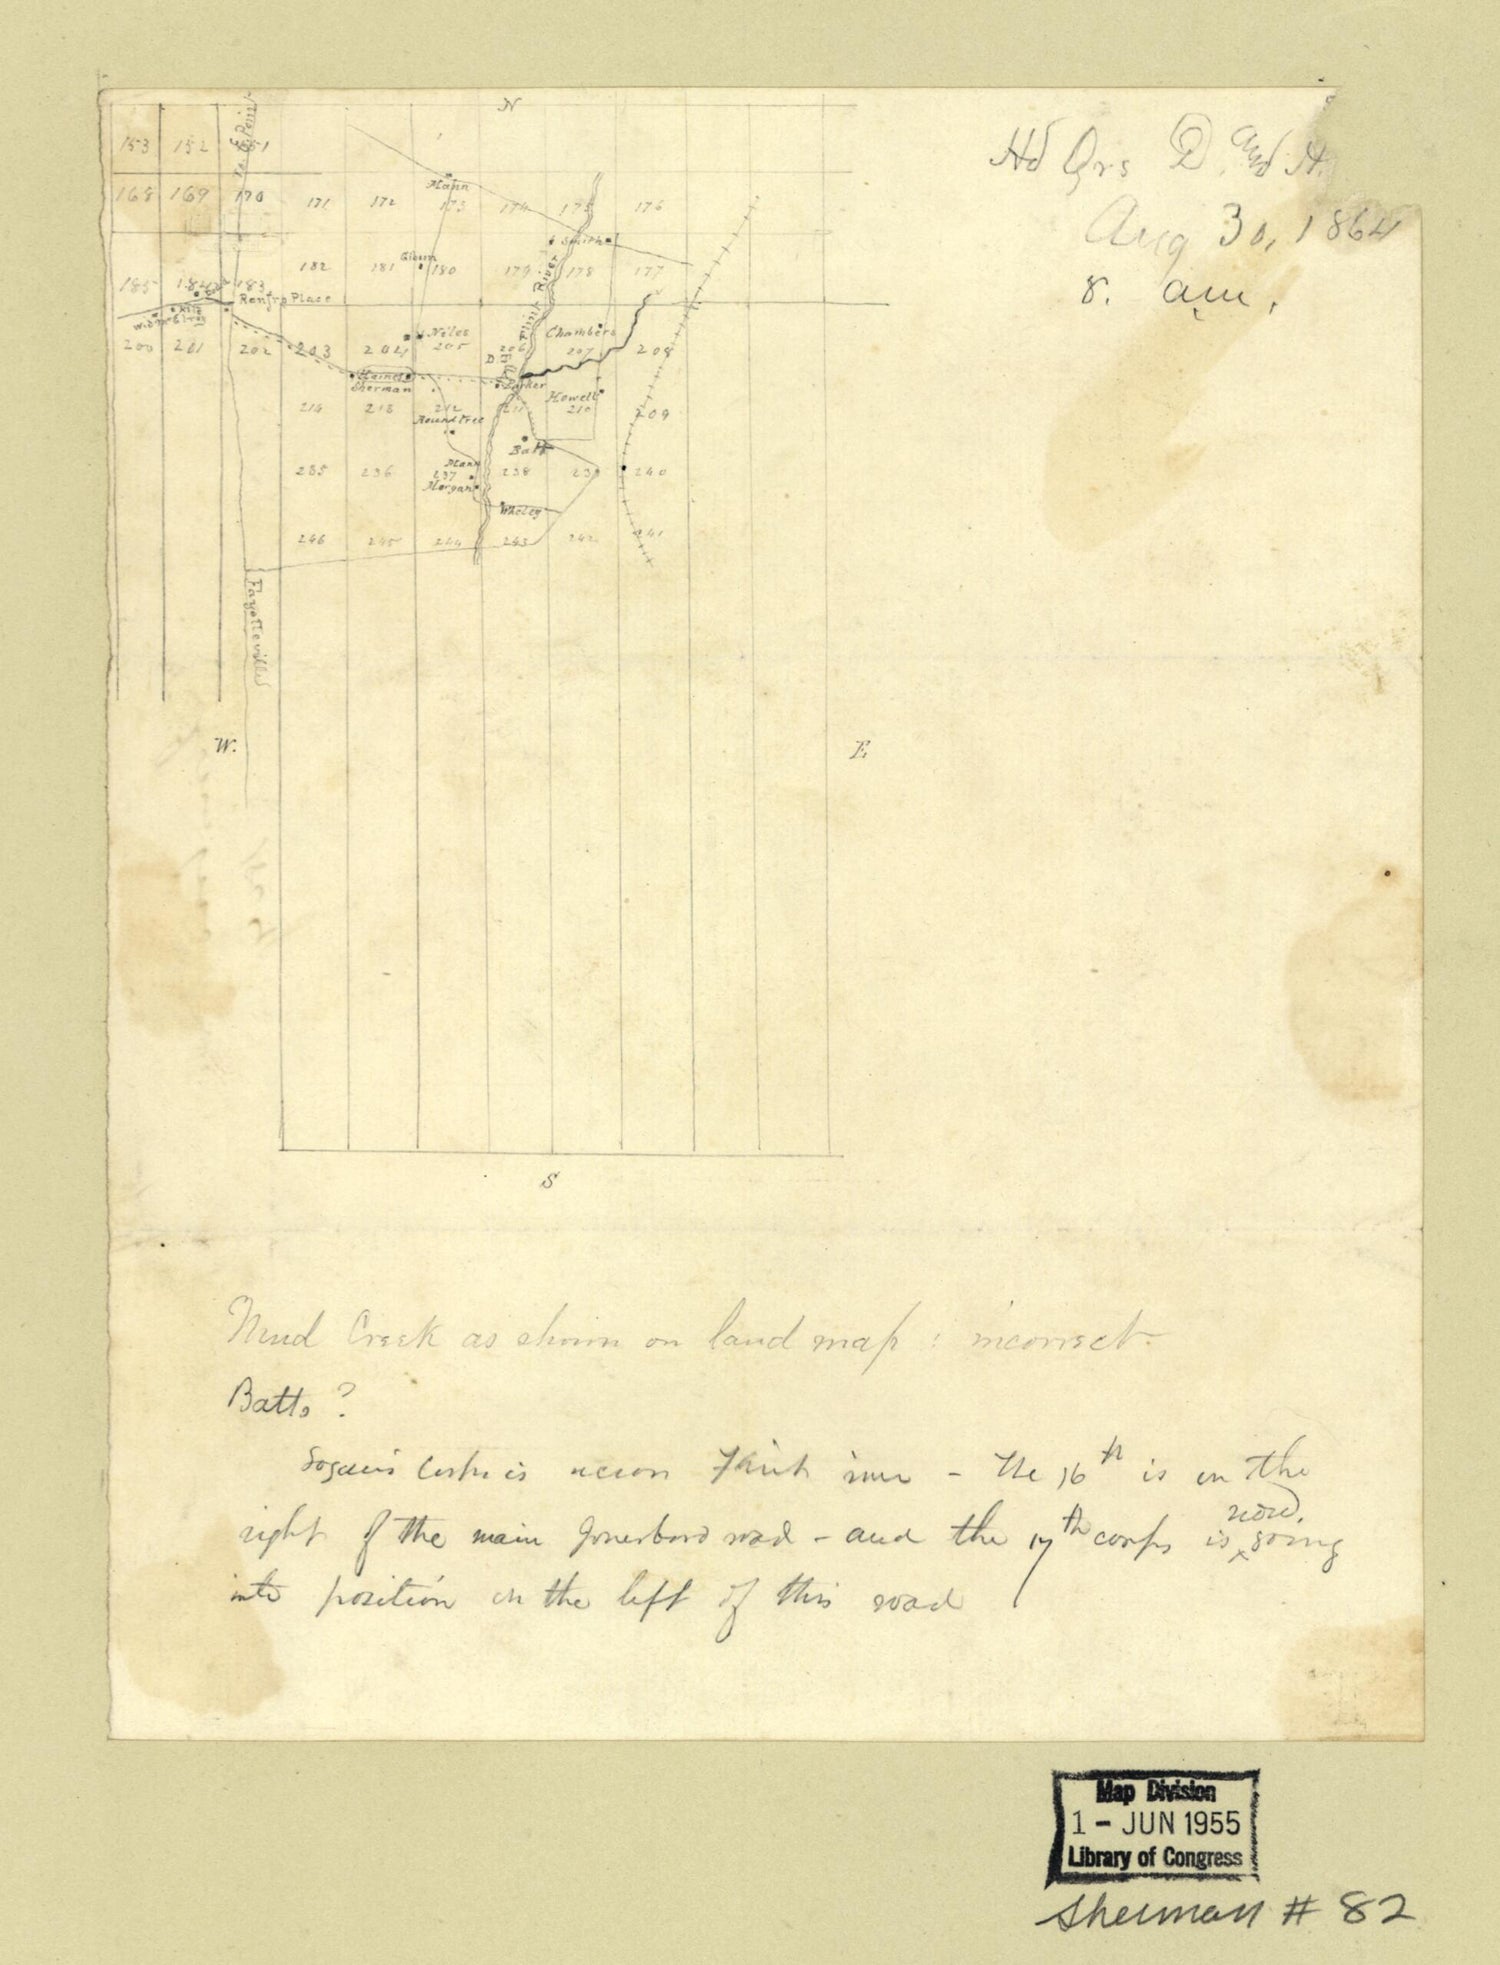 N
Hd Qrs D. and A.
Aug 30, 1864
8. am.
153 152 151
168 169 170 171 172 173 174 175 176
Mann
Smith
182 181 180 179 178 177
185 184 183
Renfro Place
Flint River
Niles
Chambers
200 201 202 203 204 205 206 207 208
Haines
Sherman
Parker
Howell
214 213 212 211 210 209
Roundtree
Batts
Mann
235 236 237 238 239 240
Morgan
Whaley
246 245 244 243 242 241
Fayetteville
W.
E
S
Mud Creek as shown on land map : incorrect.
Batts?
Logan's Corps is across Flint river - The 16th is on the
right of the main Jonesboro road - and the 17th corps is now going
into position on the left of this road
Map Division
1 - JUN 1955
Library of Congress
Sherman # 82